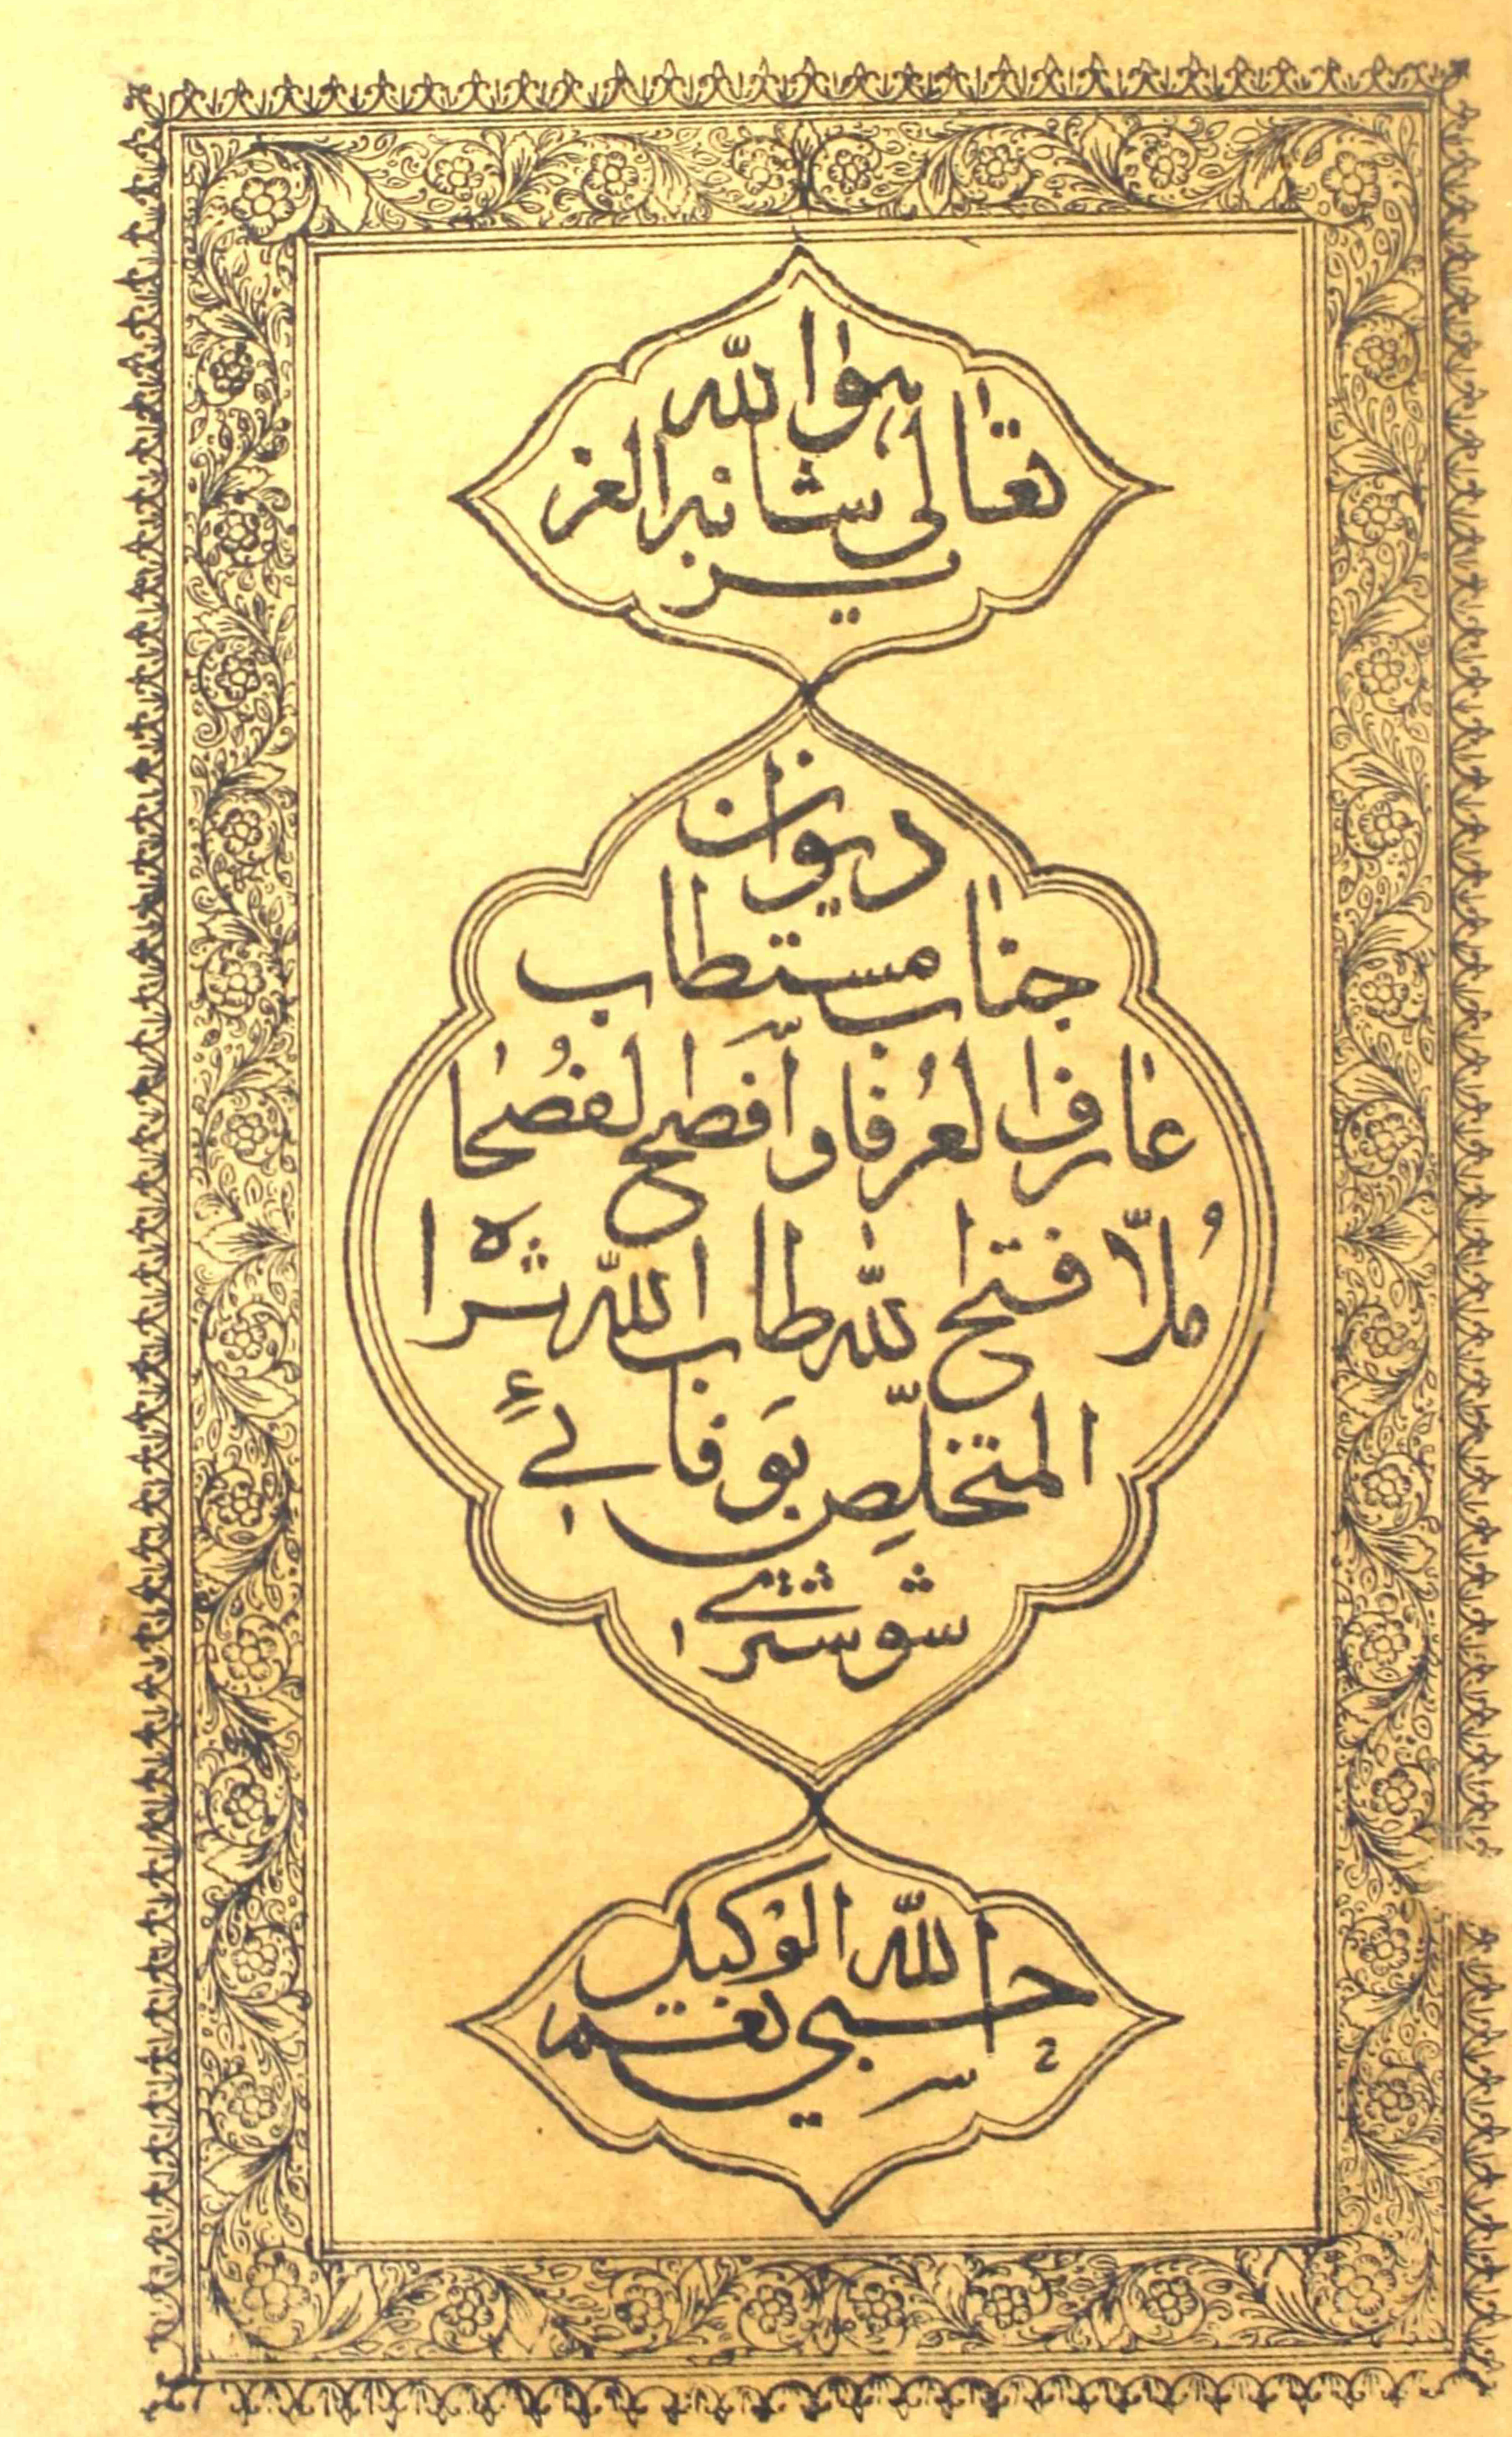 هو الله
تعالى شانه العز
يز
ديوان
جناب مستطاب
عارف العرفا و افصح الفصحا
مُلّا فتح الله طاب الله ثراه
المتخلّص بوفائی
شوشتری
الله الوكيل
حسبی نعم